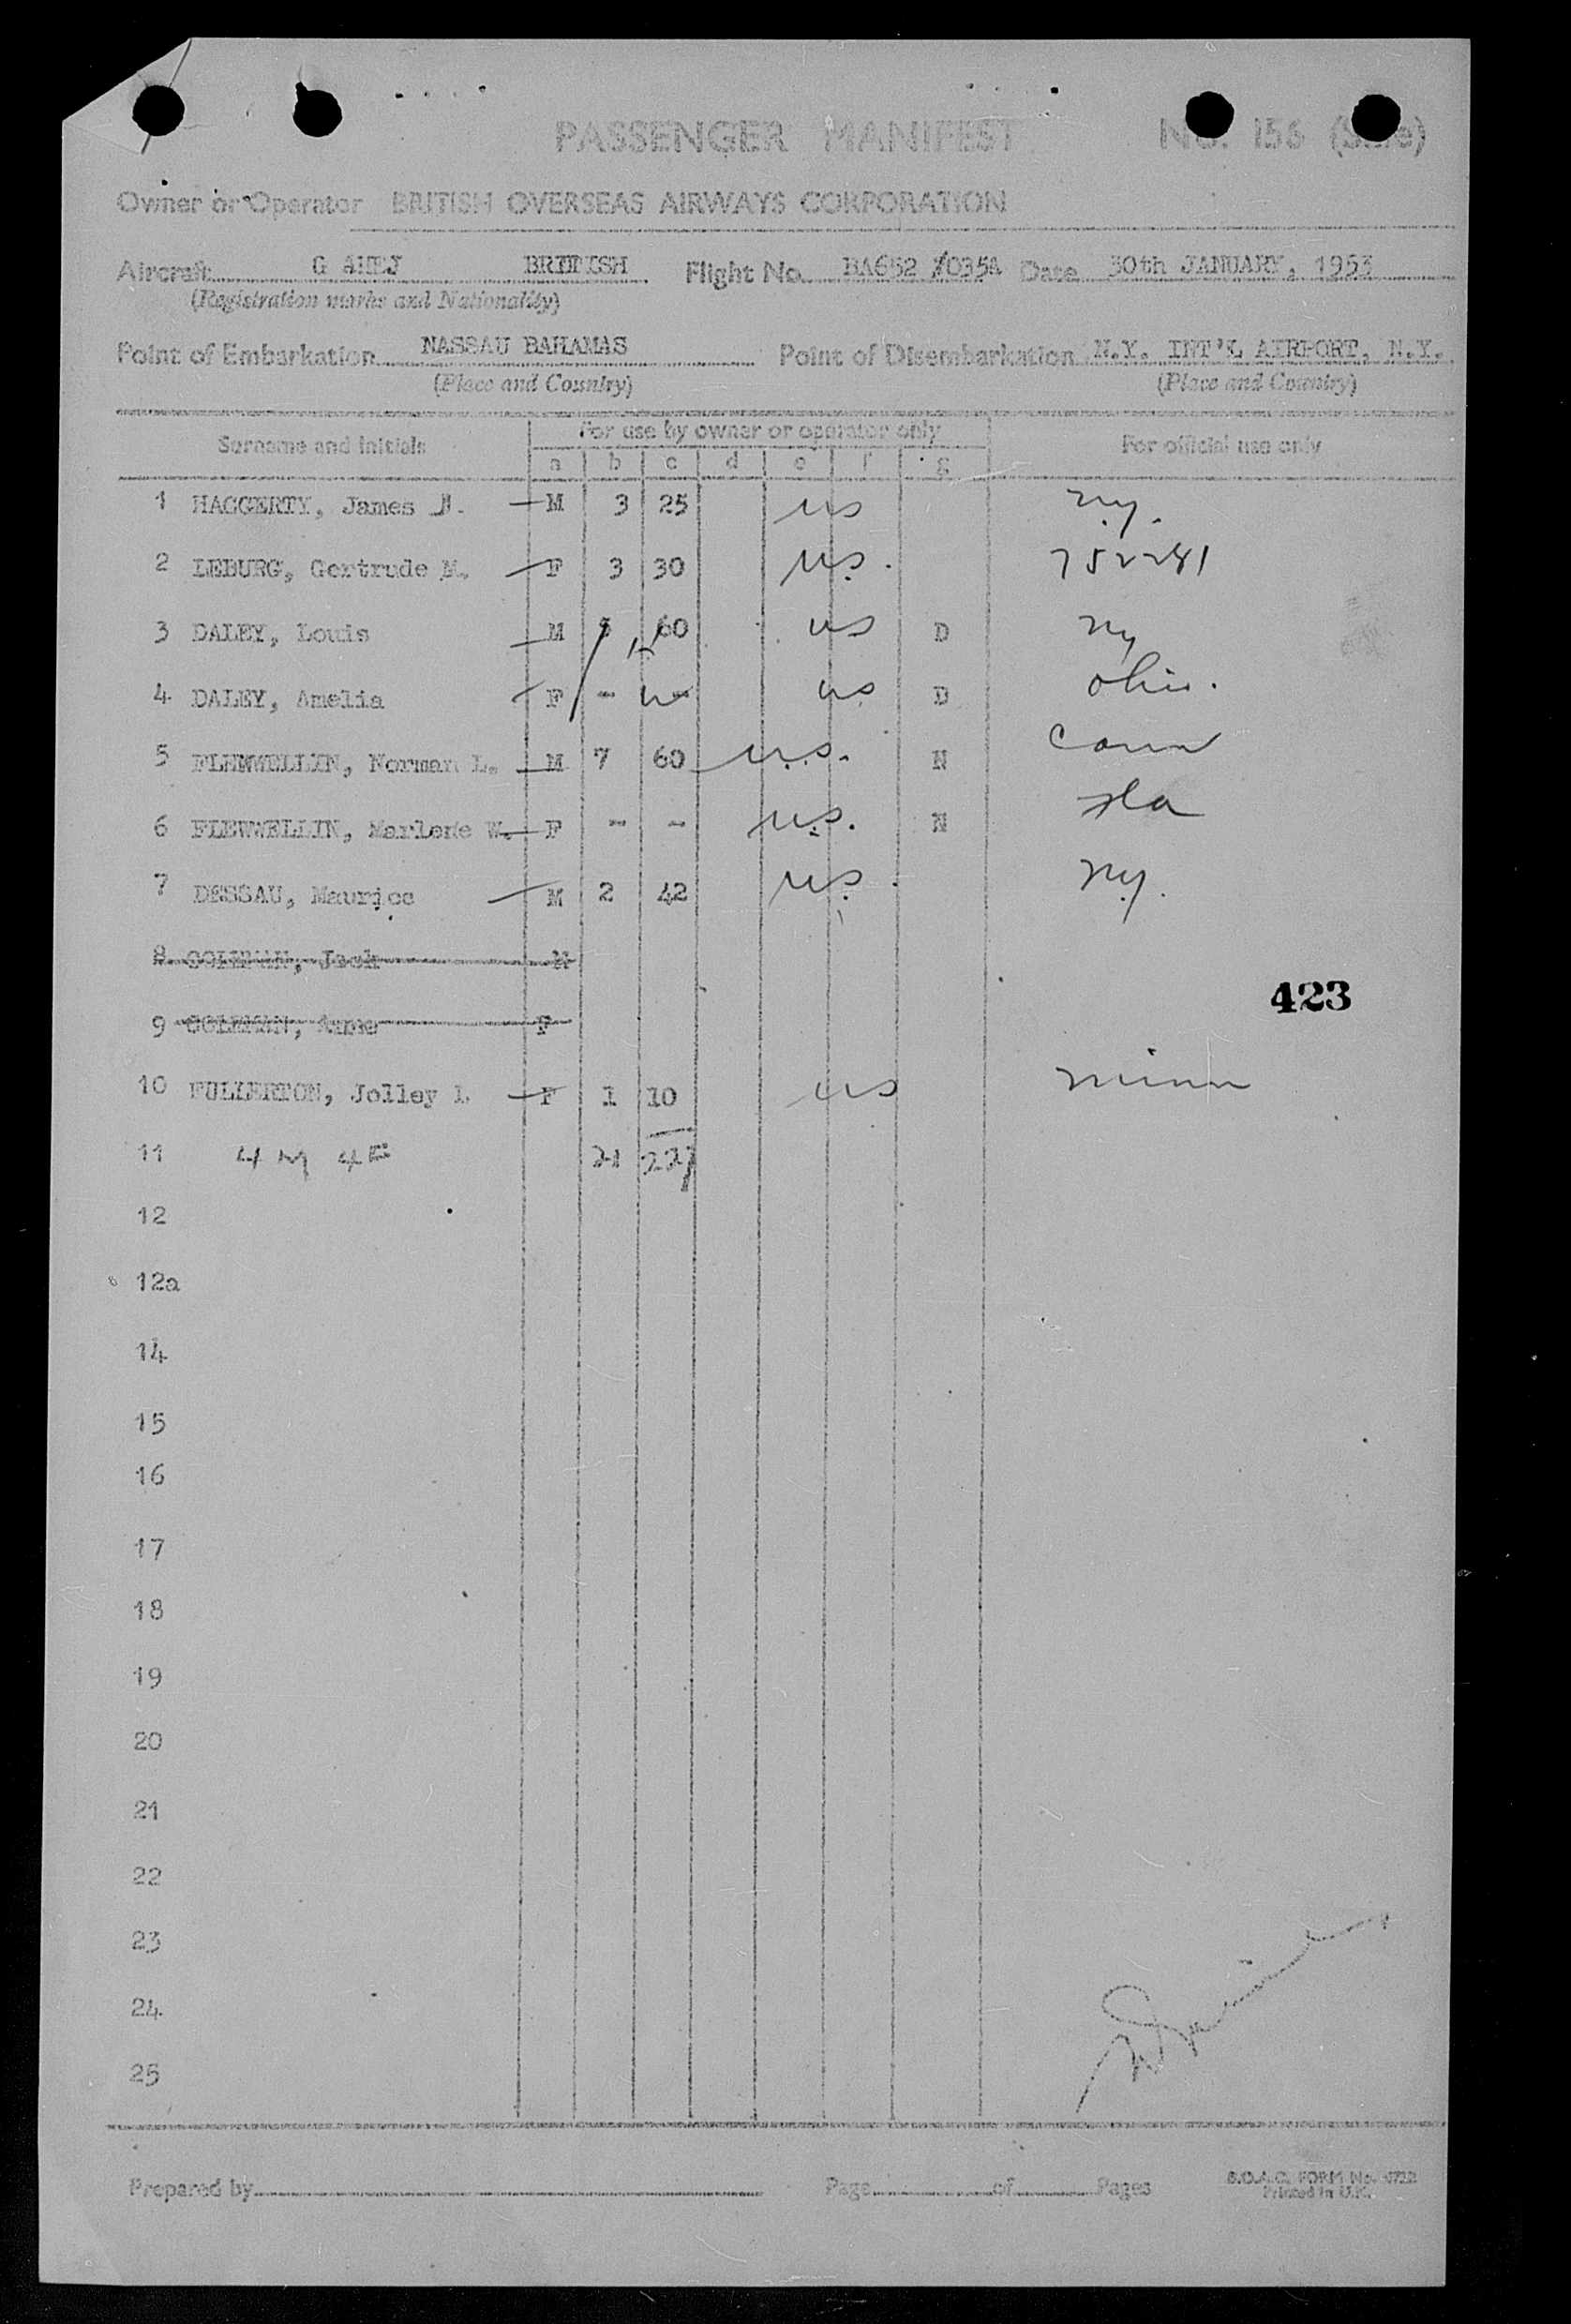 PASSENGER MANIFEST No. 156
Owner or Operator BRITISH OVERSEAS AIRWAYS CORPORATION
Aircraft G BRITISH Flight No. BA652 /035A Date 30th JANUARY, 1953
(Registration marks and Nationality)
Point of Embarkation NASSAU BAHAMAS Point of Disembarkation N.Y. INT'L AIRPORT, N.Y.
(Place and Country) (Place and Country)
Surname and initials For use by owner or operator only For official use only
a b c d e f g
1 HAGGERTY, James J. M 3 25 us N.Y.
2 LEBURG, Gertrude M. F 3 30 U.S. 752281
3 DALEY, Louis M 5 60 us D NY
4 DALEY, Amelia F - - us D Ohio.
5 FLEWWELLIN, Norman L. M 7 60 U.S. N Conn
6 FLEWWELLIN, Marlene W. F - - U.S. N
7 DESSAU, Maurice M 2 42 U.S. N.Y.
8 COLEMAN, Jack M
423
9 COLEMAN, Anne F
10 FULLERTON, Jolley F 1 10 us Minn
11 4M 4F 21 227
12
12a
14
15
16
17
18
19
20
21
22
23
24
25
Prepared by Page of Pages
B.O.A.C. FORM No.
Printed in U.K.